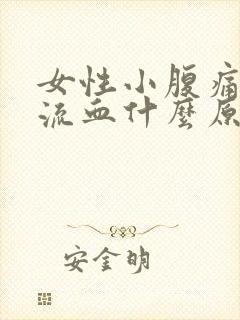 女性小腹痛
流血什麼原
安金明